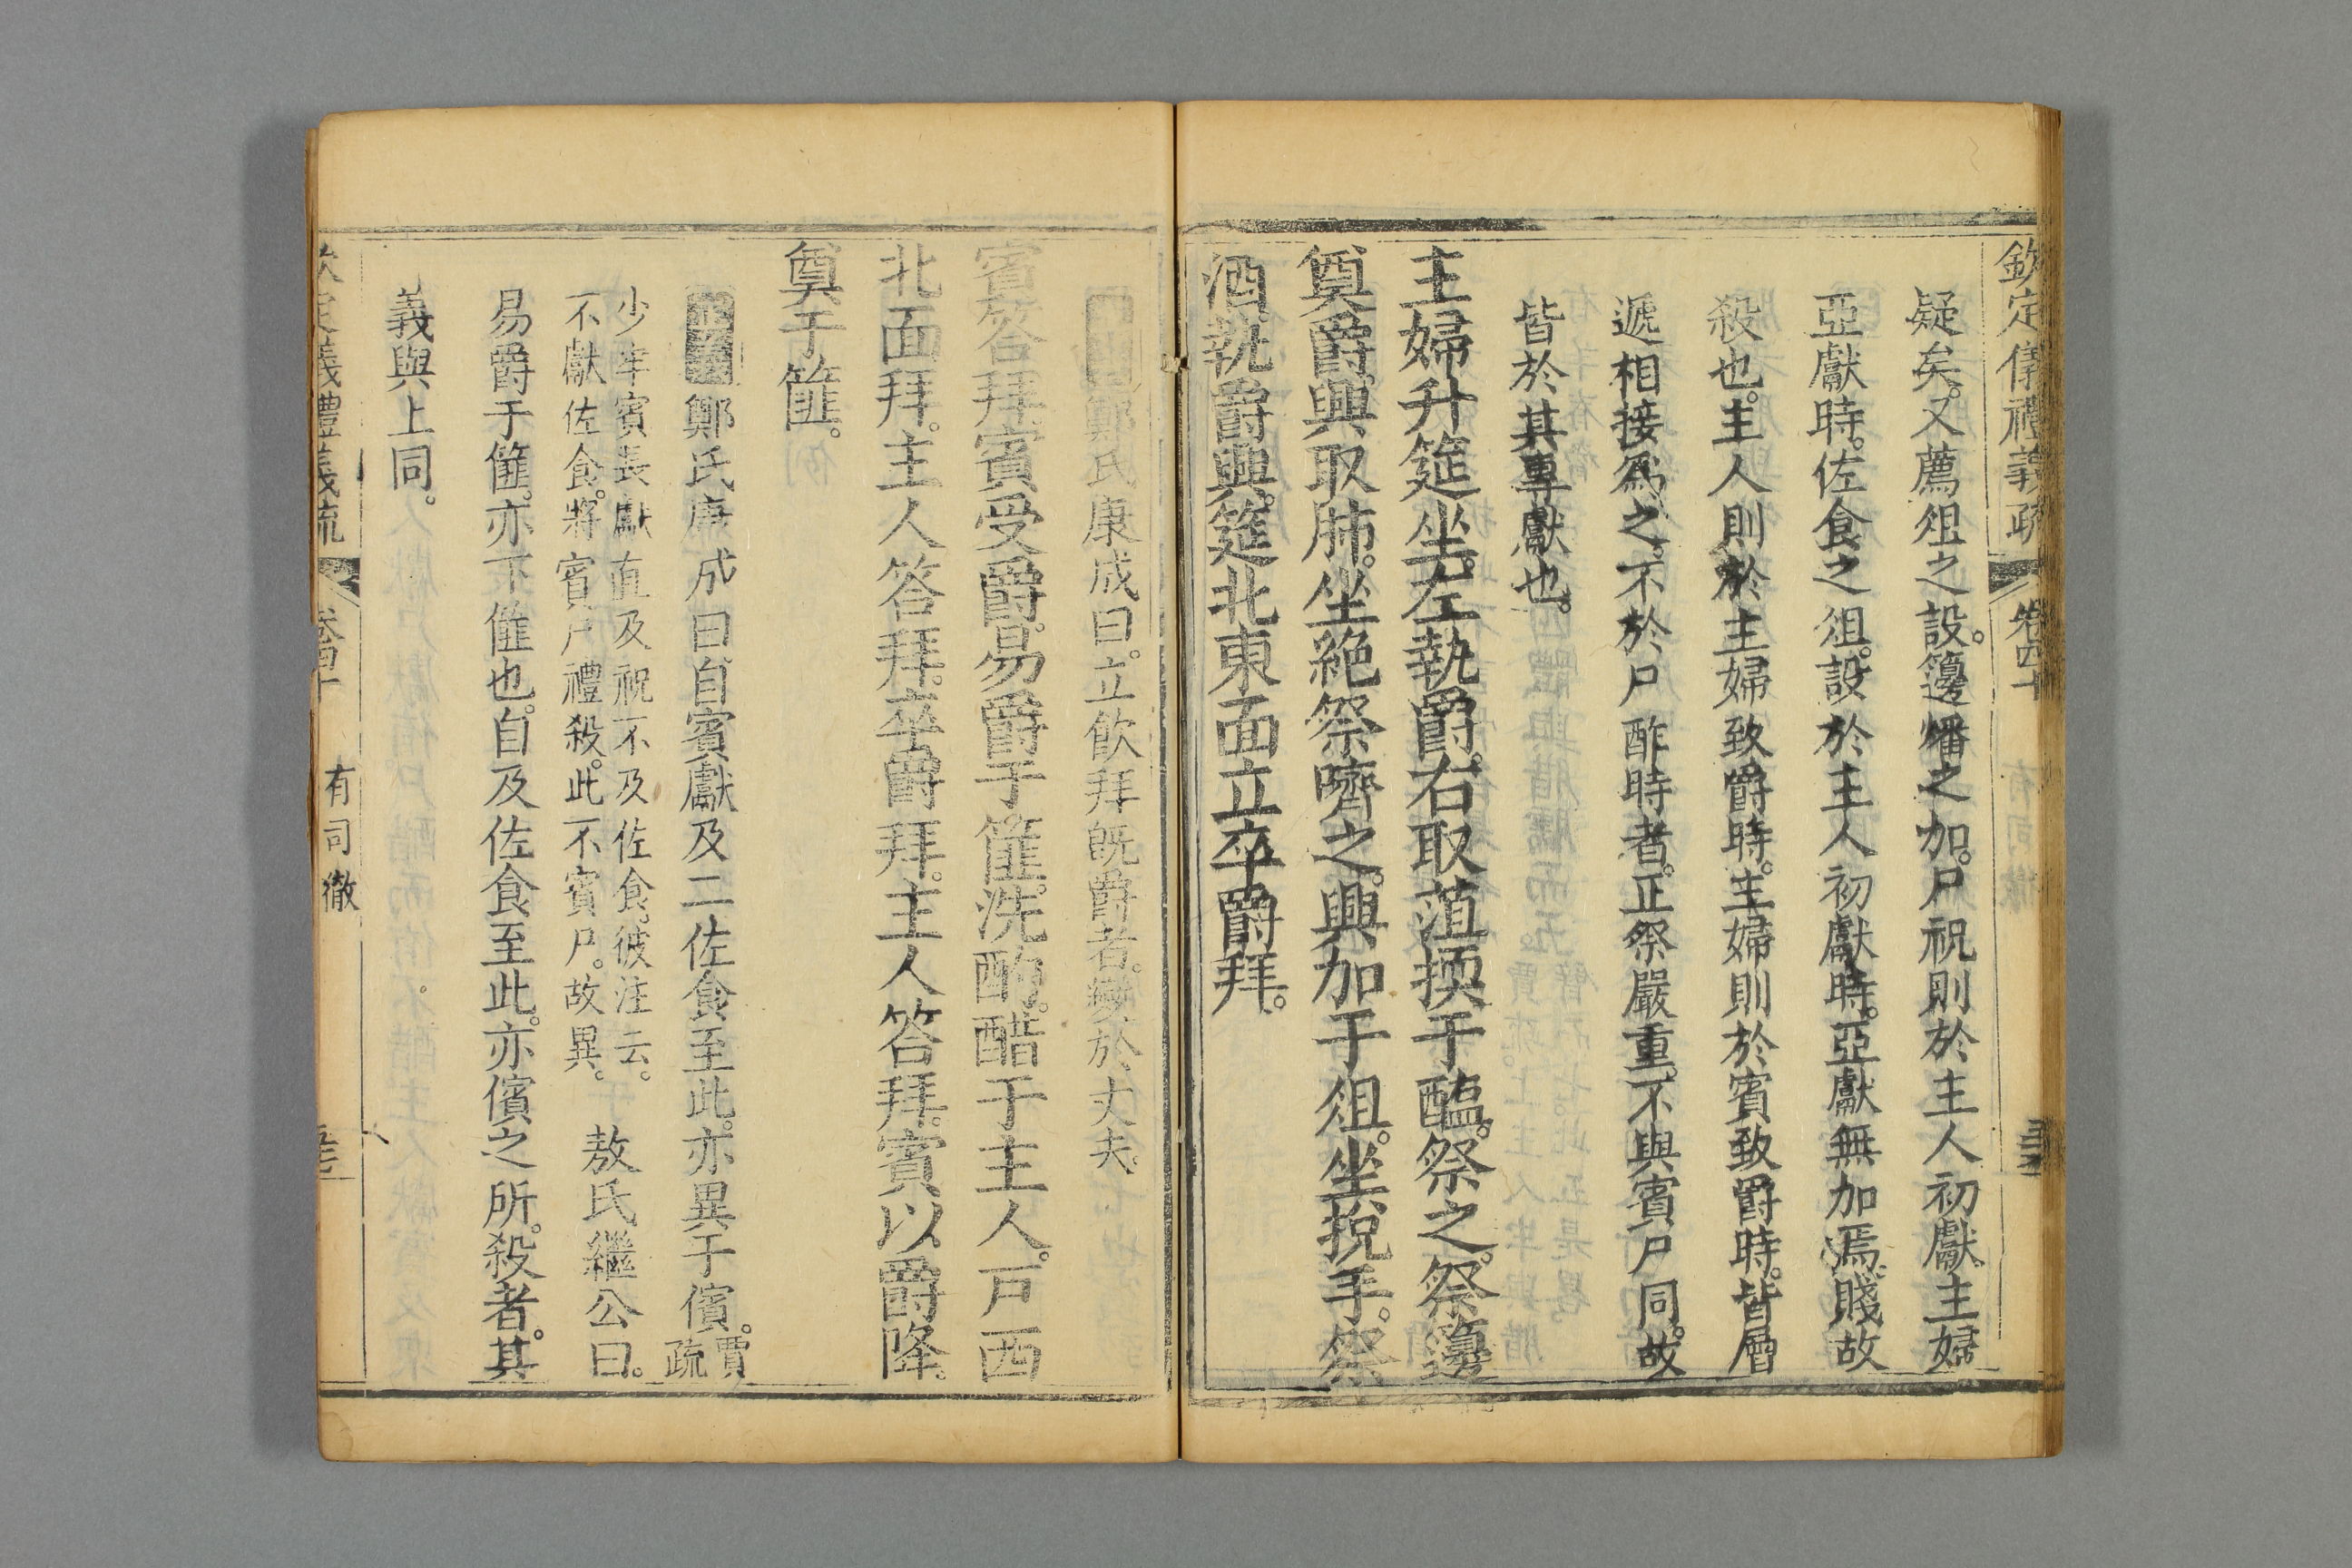 欽定儀禮義疏 卷四十
疑矣。又薦俎之設。籩燔之加。尸祝則於主人初獻。主婦
亞獻時。佐食之俎。設於主人初獻時。亞獻無加焉。賤故
殺也。主人則於主婦致爵時。主婦則於賓致爵時。皆層
遞相接爲之。不於尸酢時者。正祭嚴重。不與賓尸同。故
皆於其專獻也。
主婦升筵坐。左執爵。右取菹擩于醢。祭之。祭籩
奠爵。興取肺。坐絶祭嚌之。興加于俎。坐挩手。祭
酒。執爵興。筵北東面立卒爵拜。
鄭氏康成曰。立飮拜旣爵者。變於丈夫。
賓答拜。賓受爵。易爵于篚。洗。酌。醋于主人。戸西
北面拜。主人答拜。卒爵拜。主人答拜。賓以爵降。
奠于篚。
正義 鄭氏康成曰。自賓獻及二佐食至此。亦異于儐。賈疏
少牢賓長獻直及祝不及佐食。彼注云。
不獻佐食。將賓尸禮殺。此不賓尸。故異。
敖氏繼公曰。
易爵于篚。亦下篚也。自及佐食至此。亦儐之所。殺者。其
義與上同。
欽定儀禮義疏 卷四十 有司徹